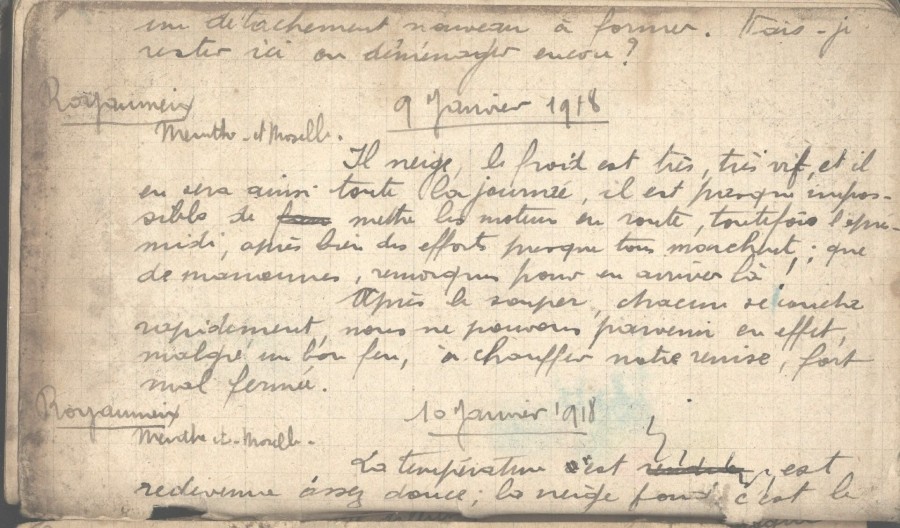 un détachement nouveau à former. Vais-je
rester ici ou déménager encore?
Royaumeix
9 Janvier 1918
Meurthe-et-Moselle.
Il neige, le froid est très, très vif, et il
en sera ainsi toute la journée, il est presque impos-
sible de mettre les moteurs en route, toutefois l'après-
midi, après bien des efforts presque tous marchent; que
de manœuvres, remorques pour en arriver là!
Après le souper, chacun se couche
rapidement, nous ne pouvons parvenir en effet,
malgré un bon feu, à chauffer notre remise, fort
mal fermée.
Royaumeix
10 Janvier 1918
Meurthe-et-Moselle.
La température s'est , est
redevenue assez douce; la neige fond c'est le